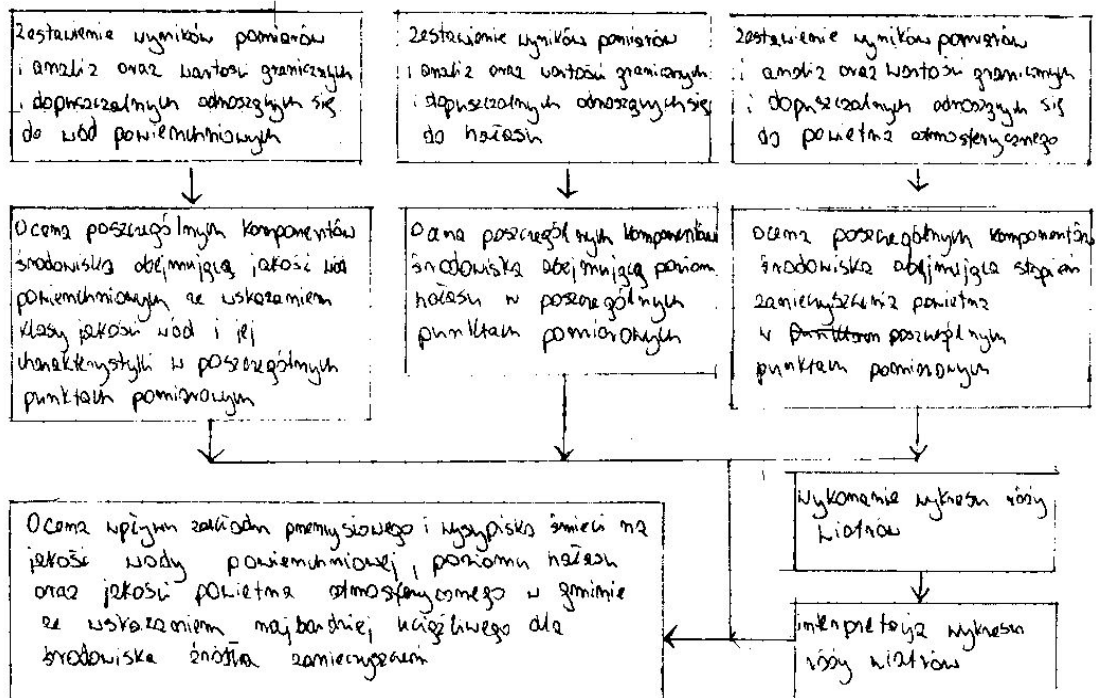 Zestawienie wyników pomiarów
i analiz oraz wartości granicznych
i dopuszczalnych odnoszących się
do wód powierzchniowych
Zestawienie wyników pomiarów
i analiz oraz wartości granicznych
i dopuszczalnych odnoszących się
do hałasu
Zestawienie wyników pomiarów
i analiz oraz wartości granicznych
i dopuszczalnych odnoszących się
do powietrza atmosferycznego
Ocena poszczególnych komponentów
środowiska obejmującą jakość wód
powierzchniowych ze wskazaniem
klasy jakości wód i jej
charakterystyki w poszczególnych
punktach pomiarowych
Ocena poszczególnych komponentów
środowiska obejmującą poziom
hałasu w poszczególnych
punktach pomiarowych
Ocena poszczególnych komponentów
środowiska obejmująca stopień
zanieczyszczenia powietrza
w poszczególnym
punktach pomiarowych
Wykonanie wykresu róży
wiatrów
Ocena wpływu zakładu przemysłowego i wysypiska śmieci na
jakość wody powierzchniowej, poziomu hałasu
oraz jakości powietrza atmosferycznego w gminie
ze wskazaniem najbardziej uciążliwego dla
środowiska źródła zanieczyszczeń
interpretacja wykresu
róży wiatrów